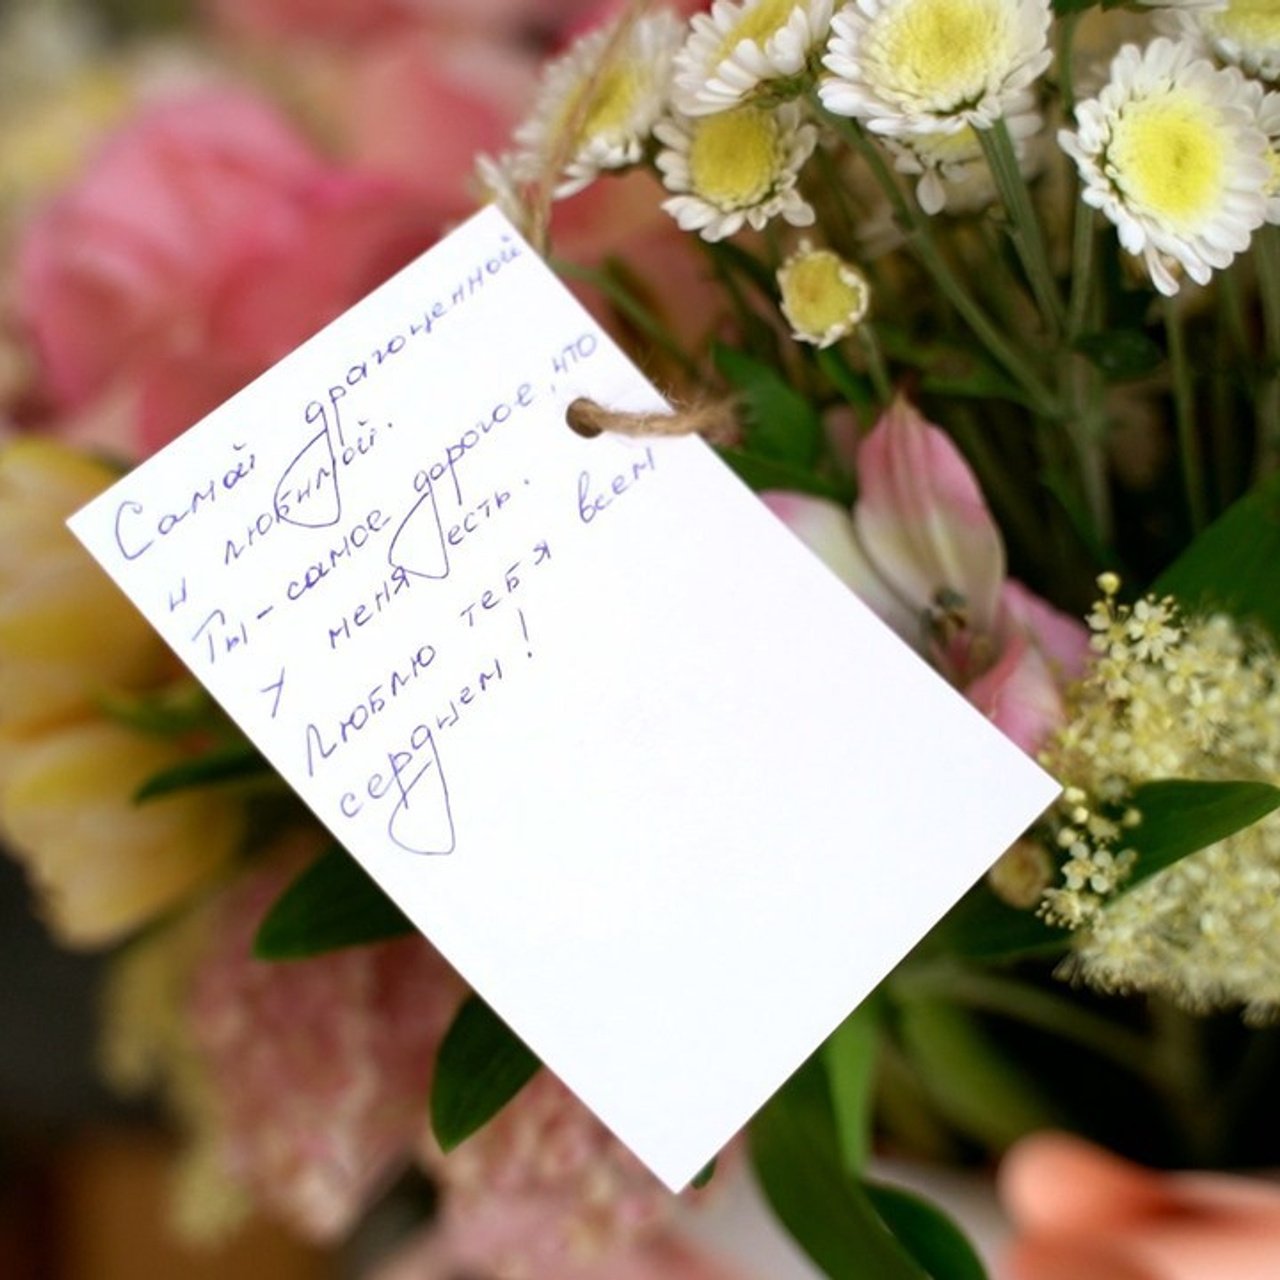 Самой драгоценной
и любимой.
Ты - самое дорогое, что
у меня есть.
Люблю тебя всем
сердцем!